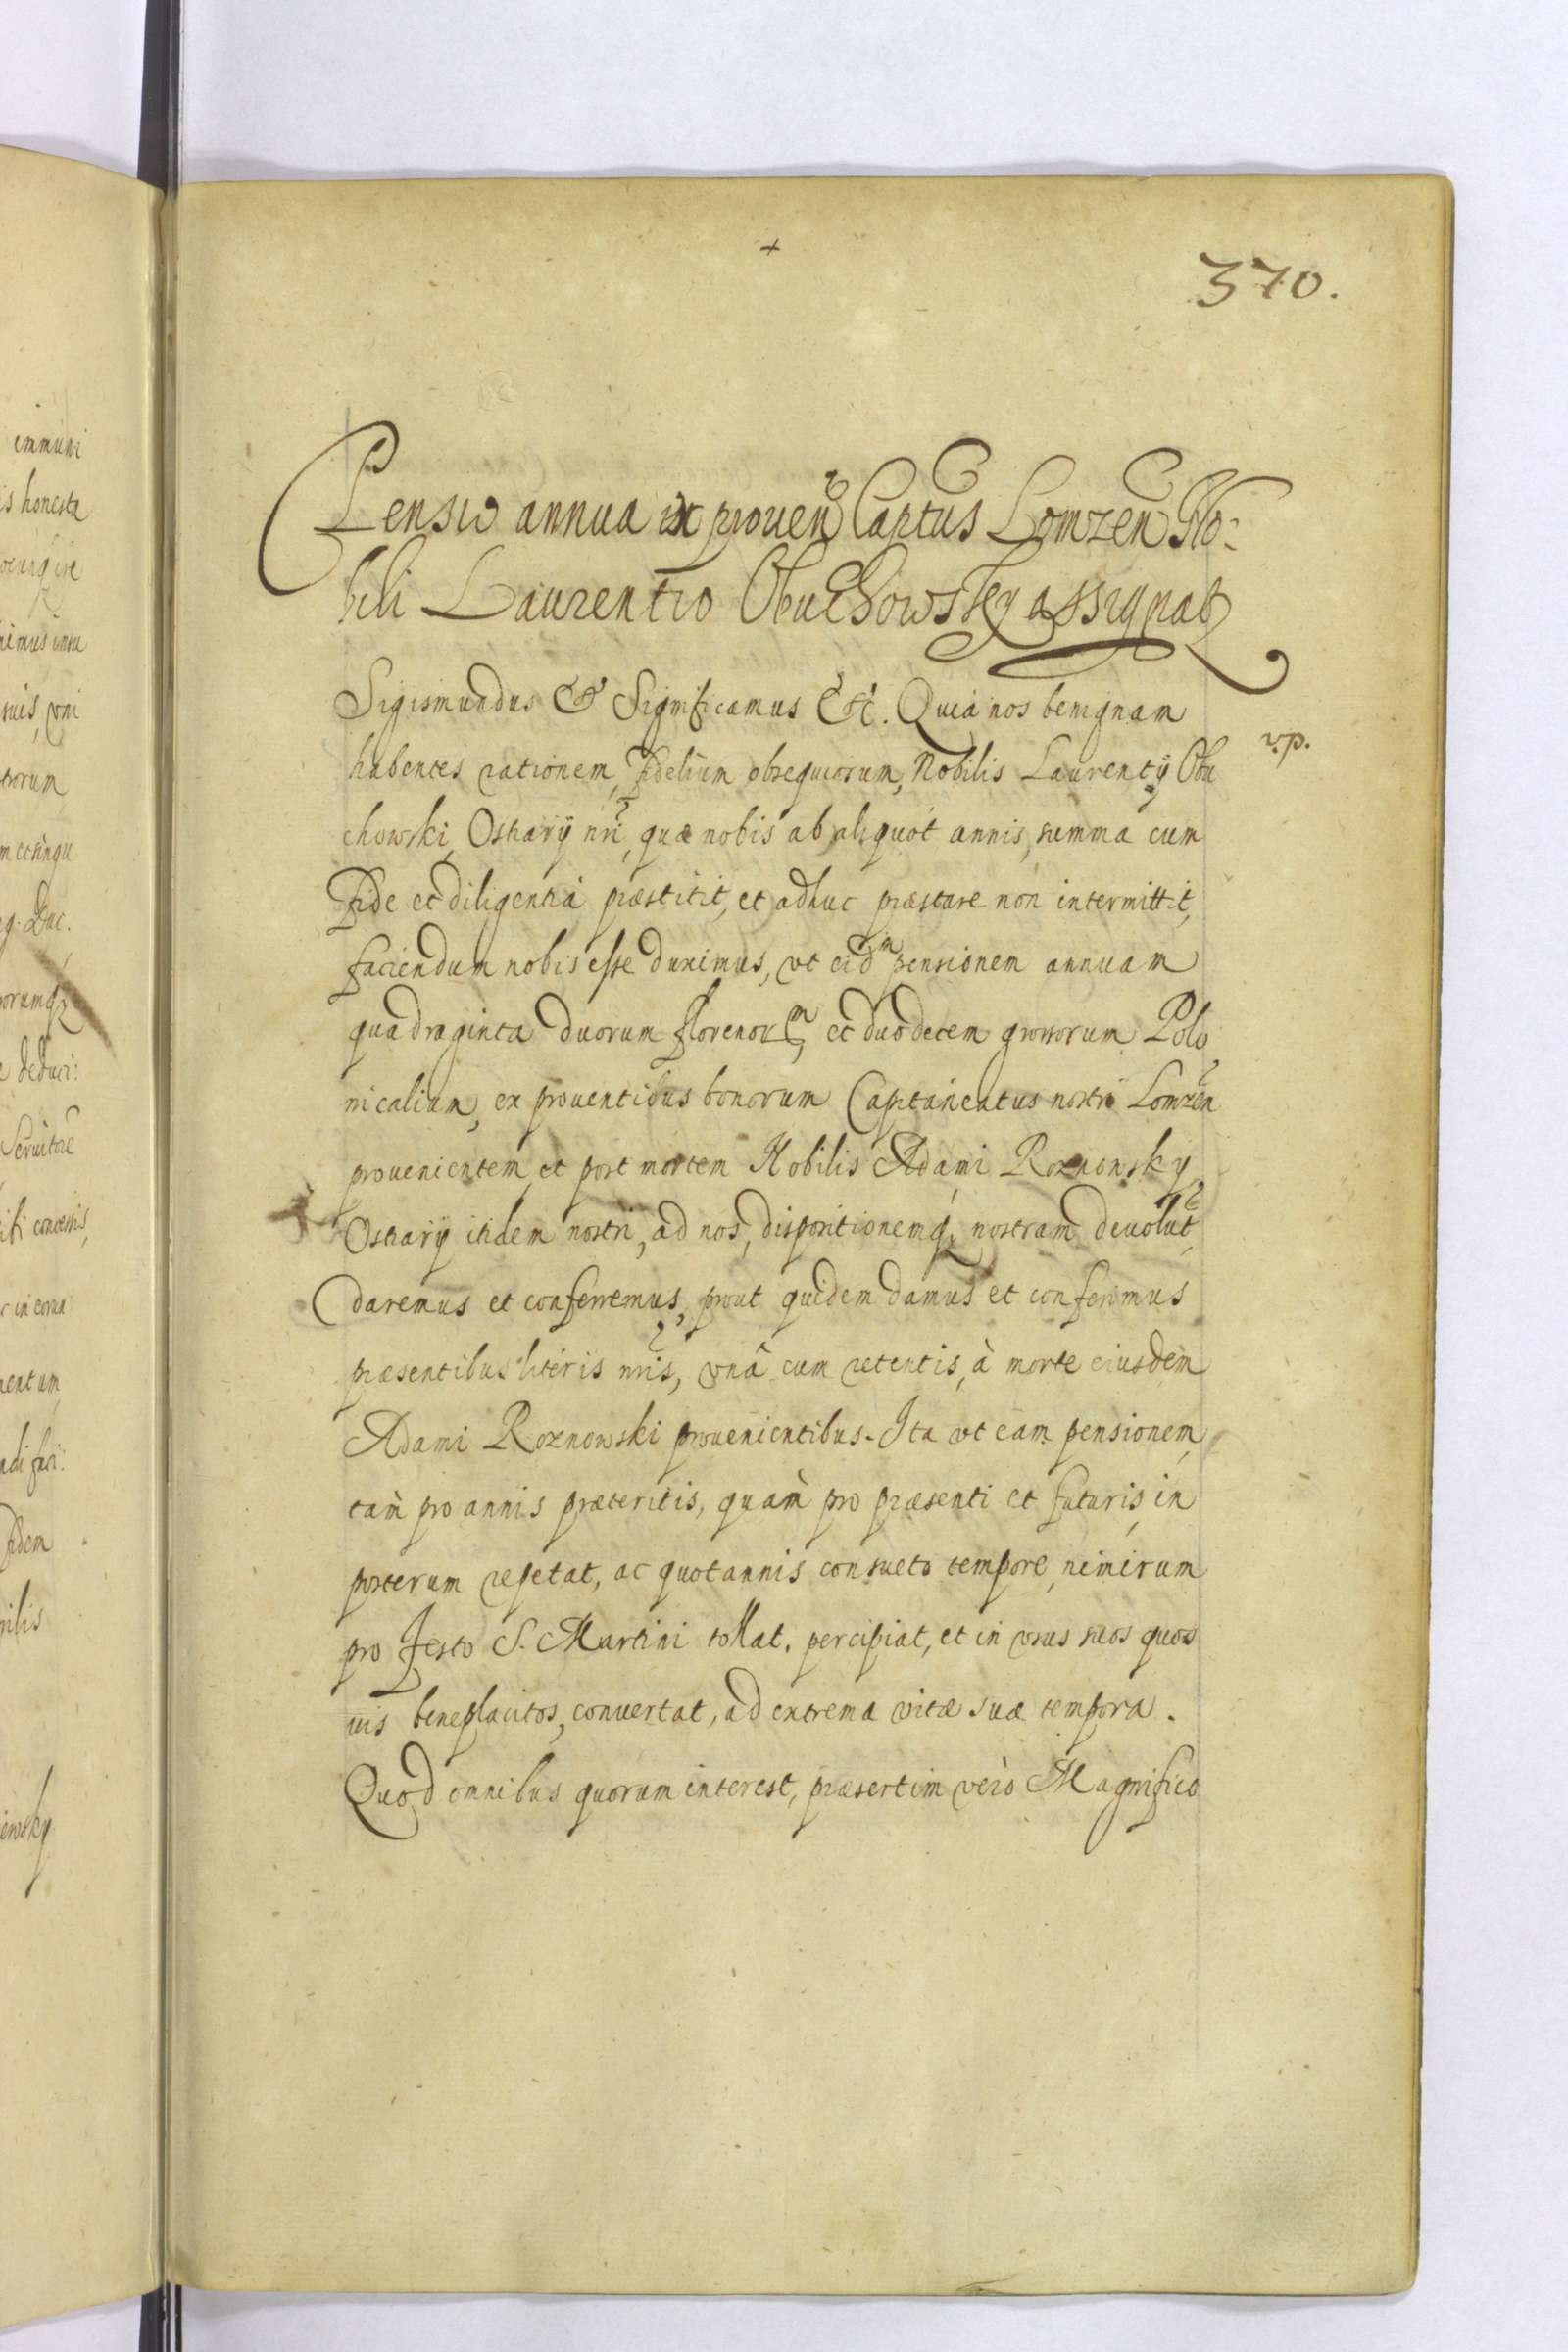 370.
Pensio annua ex prouen Captus Lomzen No:
bili Laurentio Obuchowsky assignat
Sigismundus &c Significamus &c. Quia nos benignam
v.p.
habentes rationem, fidelium obsequiorum, Nobilis Laurentij Obu
chowski, Ostiarij nri, quæ nobis ab aliquot annis, summa cum
fide et diligentià præstitit, et adhuc præstare non intermittit,
faciendum nobis esse duximus, vt eidm pensionem annuam
quadraginta duorum florenorum, et duodecem grossorum Polo
nicalium, ex prouentibus bonorum Capitaneatus nostri Lomzen
prouenientem, et post mortem Nobilis Adami Roznowsky,
Ostiarij itidem nostri, ad nos, dispositionemq; nostram deuolut,
daremus et conferremus, prout quidem damus et conferimus
præsentibus literis nris, vnâ cum retentis, à morte eiusdem
Adami Roznowski prouenientibus. Ita vt eam pensionem,
tam̀ pro annis præteritis, quam̀ pro præsenti et futuris, in
posterum repetat, ac quotannis consueto tempore, nimirum
pro festo S. Martini tollat, percipiat, et in vsus suos quos
uis beneplacitos, conuertat, ad extrema vitæ suæ tempora.
Quod omnibus quorum interest, præsertim verò Magnifico
immuni
is honesta
nimus insu
suis, vni
torum
m et singu
Duc.
orumq;
deduci:
Seruitore
concessis,
in cora
mentum
fidem
iewsky